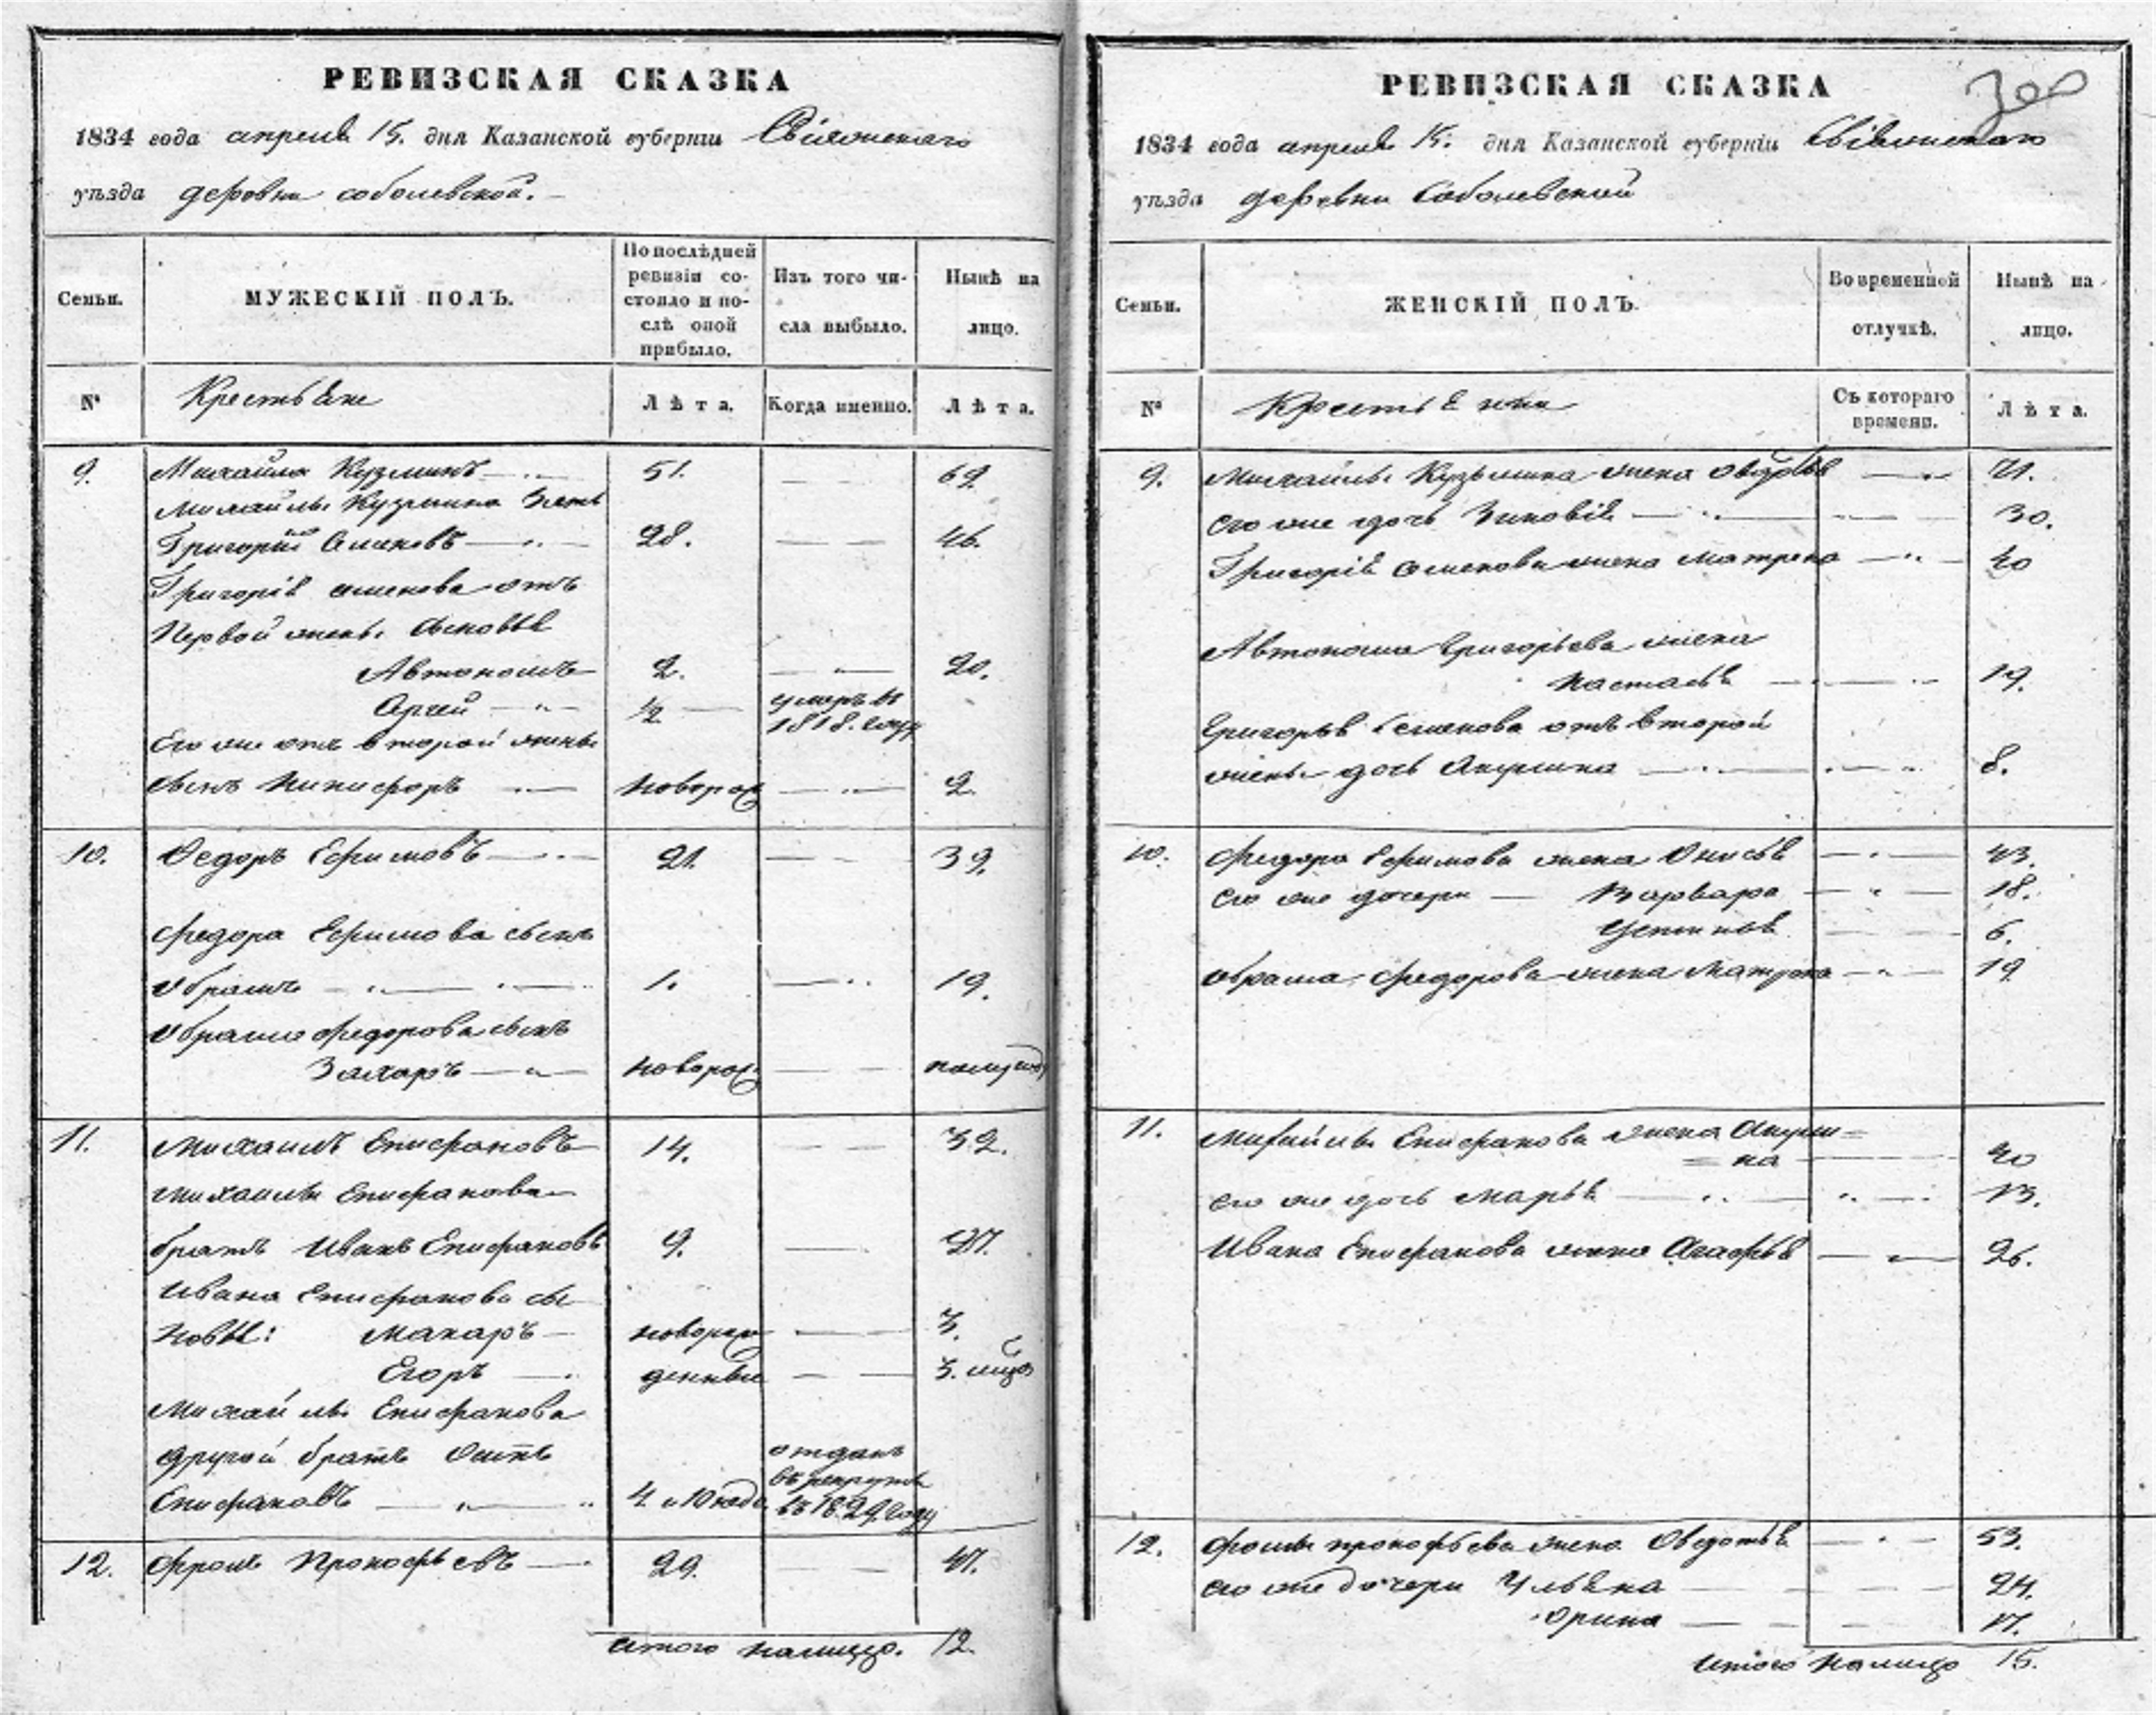 РЕВИЗСКАЯ СКАЗКА
1834 года апреля 15. дня Казанской губернiи Свiяжскаго
уѣзда деревни соболевской.
Семьи.
МУЖЕСКIЙ ПОЛЪ.
По послѣдней ревизiи состояло и послѣ оной прибыло.
Изъ того числа выбыло.
Нынѣ на лицо.
№
Крестьяне
Лѣта.
Когда именно.
Лѣта.
9. Михайла Кузминъ 51. 69.
Михайлы Кузмина Зять
Григорiй Семеновъ 28. 46.
Григорiя семенова отъ
Первой жены сыновья
Автономъ 2. 20.
Сергей 1/2 умеръ в
1818. году
Его же отъ второй жены
сынъ Никифоръ новорож 2.
10. Федоръ Ефимовъ 21. 39.
Федора Ефимова сынъ
Абрамъ 1. 19.
Абрама Федорова сынъ
Захаръ новорож полугода
11. Михаилъ Епифановъ 14. 32.
Михаилы Епифанова
братъ Иванъ Епифановъ 9. 27.
Ивана Епифанова сы
новья: Макаръ новорож 3.
Егоръ 3.
Михайлы Епифанова
другой братъ Осипъ отданъ
въ рекруты
Епифановъ въ 1829 году
12. Фромъ Прокофьевъ 29. 47.
итого налицо. 12.
РЕВИЗСКАЯ СКАЗКА
1834 года апреля 15. дня Казанской губернiи Свiяжскаго
уѣзда деревни Соболевской
Семьи.
ЖЕНСКIЙ ПОЛЪ.
Во временной отлучкѣ.
Нынѣ на лицо.
№
Крестьянки
Съ котораго времени.
Лѣта.
9. Михайлы Кузьмина жена 71.
Его же дочь Зиновiя 30.
Григорiя семенова жена Матрена 40
Автонома Григорьева жена
Настасья 19.
Григорья Семенова отъ второй
жены дочь Акулина 8.
10. Федора Ефимова жена Анисья 43.
Его же дочери Варвара 18.
Устинья 6.
Абрама Федорова жена Матрена 19
11. Михайлы Епифанова жена Акули=
=на 40
его же дочь Марья 13.
Ивана Епифанова жена Агафья 26.
12. Фомы прокофьева жена Овдотья 53.
его же дочери Ульяна 24.
Орина 17.
итого налицо 15.